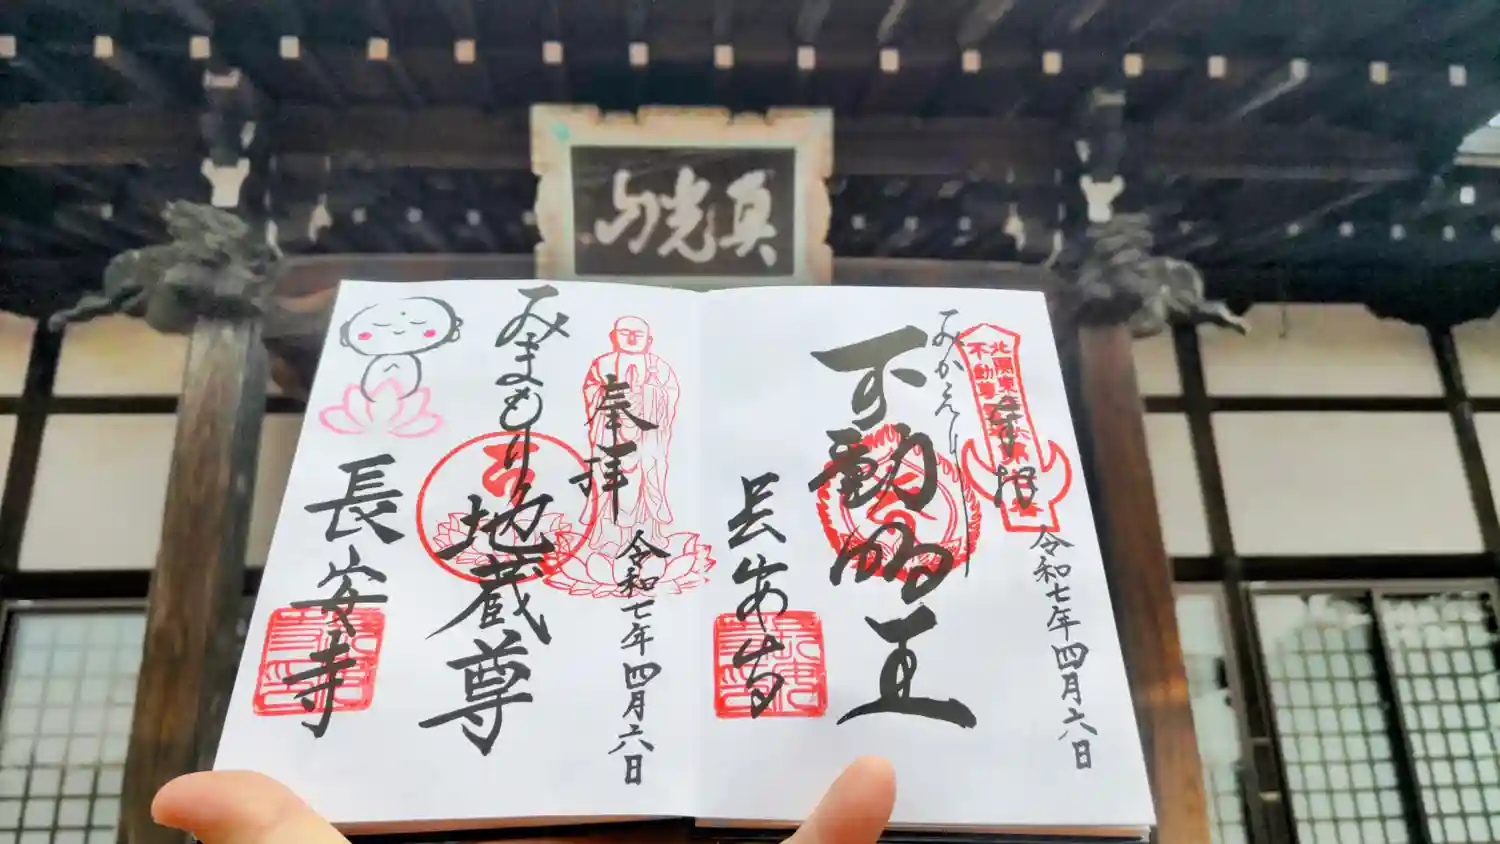 真光山
奉拝
令和七年四月六日
みかえり
不動明王
長安寺
北関東
不動尊
奉拝
令和七年四月六日
みまもり
地蔵尊
長安寺